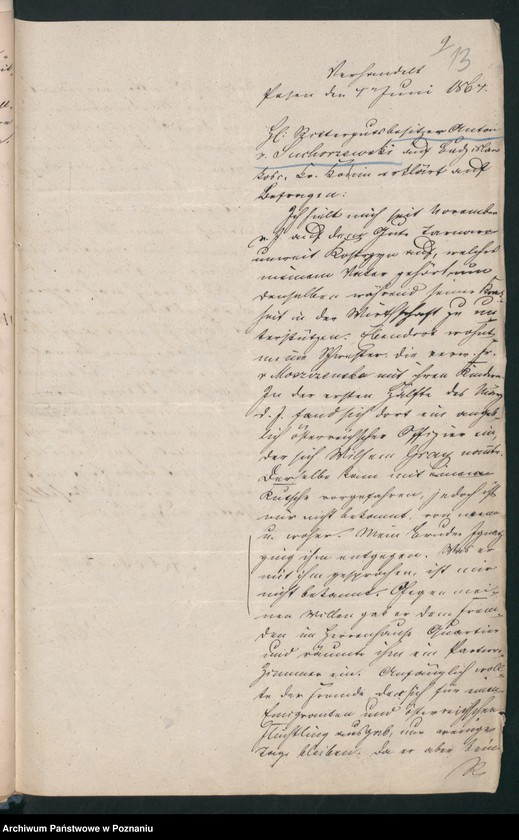 9
13
Verhandelt
Posen den 4t Juni 1864.
H: Rittergutsbesitzer Anton
v. Suchorzewski auf
Kr. erklärt auf
Befragen:
Ich hielt mich seit November
v. J. auf dem Gute Tarnowo
unweit Kostrzyn auf, welches
meinem Vater gehört, um
denselben während seiner Krank
heit in der Wirthschaft zu un
terstützen. Ebendort wohnt
meine Schwester die verw. Fr.
v Moszczenska mit ihren Kindern
In der ersten Hälfte des März
d. J. fand sich dort ein angeb
lich österreichscher Offizier ein,
der sich Wilhelm Graz nannte.
Derselbe kam mit einer
Kutsche vorgefahren, jedoch ist
mir nicht bekannt, von wem
u. woher. Mein Bruder Ignaz
ging ihm entgegen. Was er
mit ihm gesprochen, ist mir
nicht bekannt. Gegen mei
nen Willen gab er dem Frem
den im Herrenhause Quartier
und räumte ihm ein Parterre
Zimmer ein. Anfänglich woll
te der Fremde der sich für einen
Emigranten und österreichschen
Flüchtling ausgab, nur wenige
Tage bleiben. Da er aber kein
Archiwum Państwowe w Poznaniu